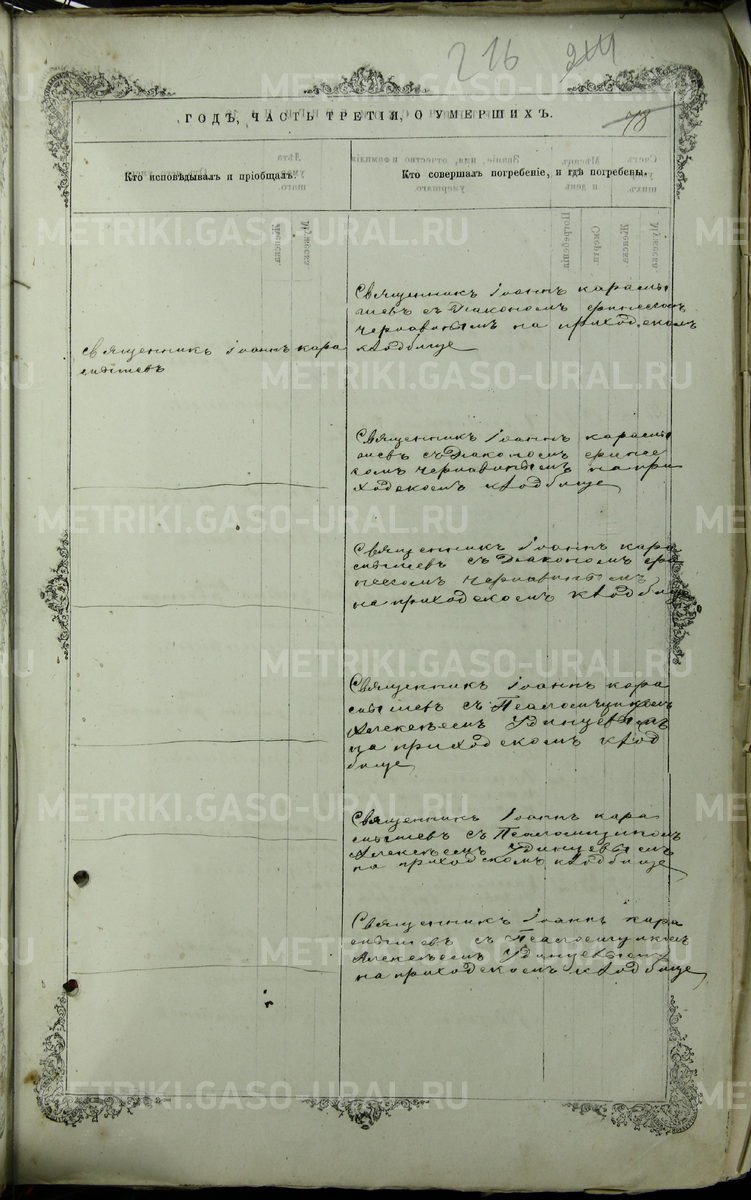 216
78
ГОДЪ, ЧАСТЬ ТРЕТІЯ, О УМЕРШИХЪ.
Кто исповѣдывалъ и пріобщалъ.
Кто совершалъ погребеніе, и гдѣ погребены.
Священникъ Іоаннъ Карамы
шевъ съ Діакономъ Финеесомъ
Чернавинымъ на приходскомъ
кладбище
Священникъ Іоаннъ Кара
мышевъ
Священникъ Іоаннъ Карамы
шевъ съ Діакономъ Финее
сомъ Чернавинымъ на при
ходскомъ кладбище
Священникъ Іоаннъ Кара
мышевъ съ Діакономъ Фи
неесомъ Чернавинымъ
на приходскомъ кладбище
Священникъ Іоаннъ Кара
мышевъ съ Псаломщикомъ
Алексѣемъ Удинцевымъ
на приходскомъ клад
бище
Священникъ Іоаннъ Кара
мышевъ съ Псаломщикомъ
Алексѣемъ Удинцевымъ
на приходскомъ кладбище
Священникъ Іоаннъ Кара
мышевъ съ Псаломщикомъ
Алексѣемъ Удинцевымъ
на приходскомъ кладбище
METRIKI.GASO-URAL.RU